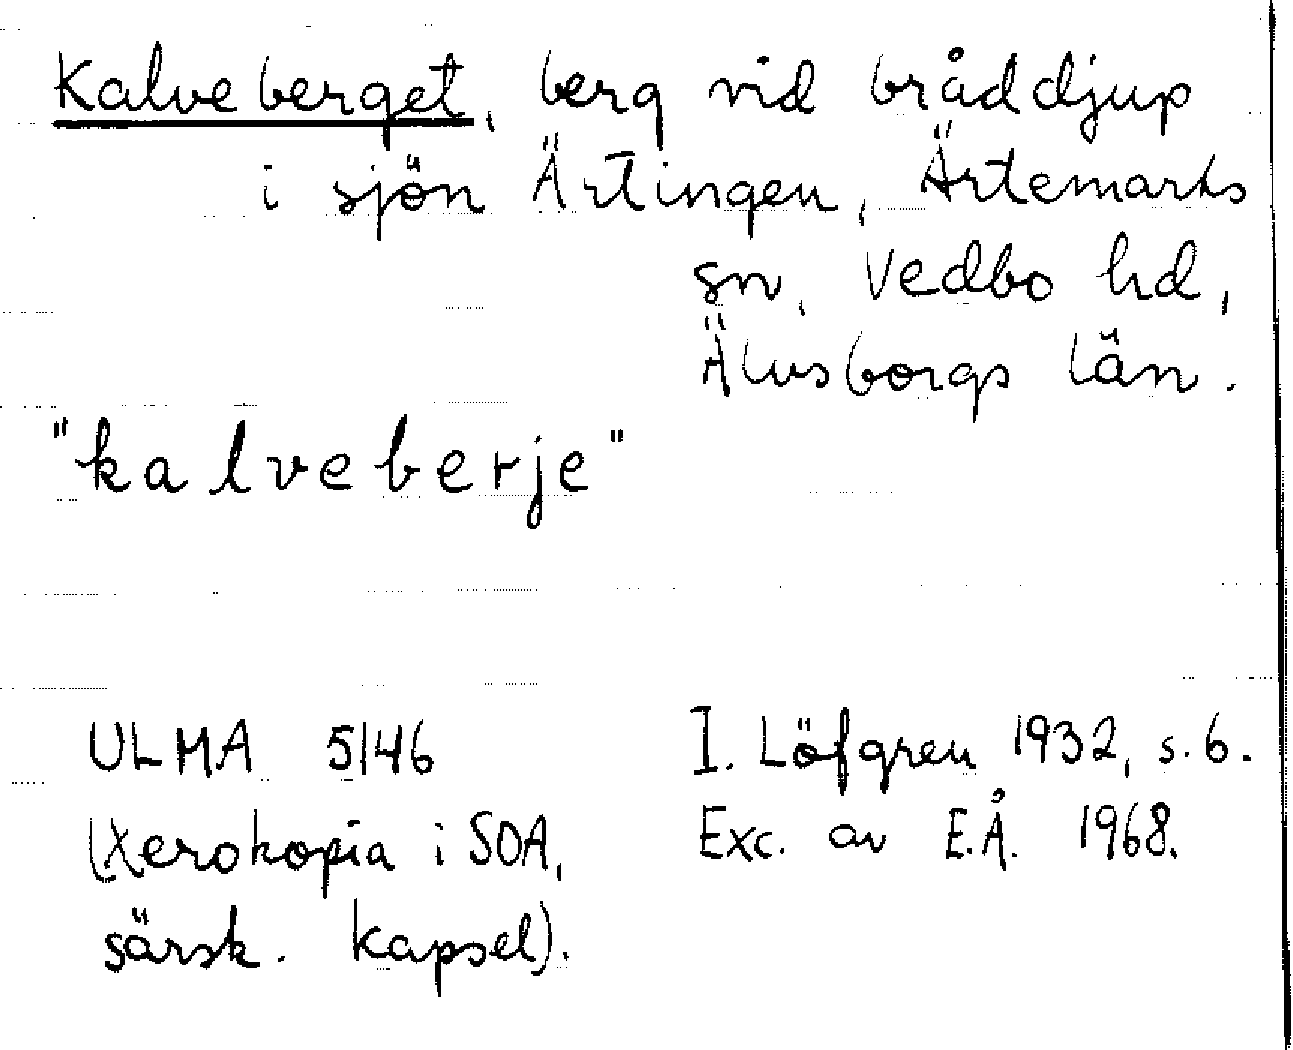 Kalveberget, berg vid bråddjup
i sjön Ärtingen, Ärtemarks
sn, Vedbo hd,
Älvsborgs län.
"kalveberje"
ULMA 5146
(Xerokopia i SOA,
särsk. kapsel).
I. Löfgren 1932, s. 6.
Exc. av E.Å. 1968.